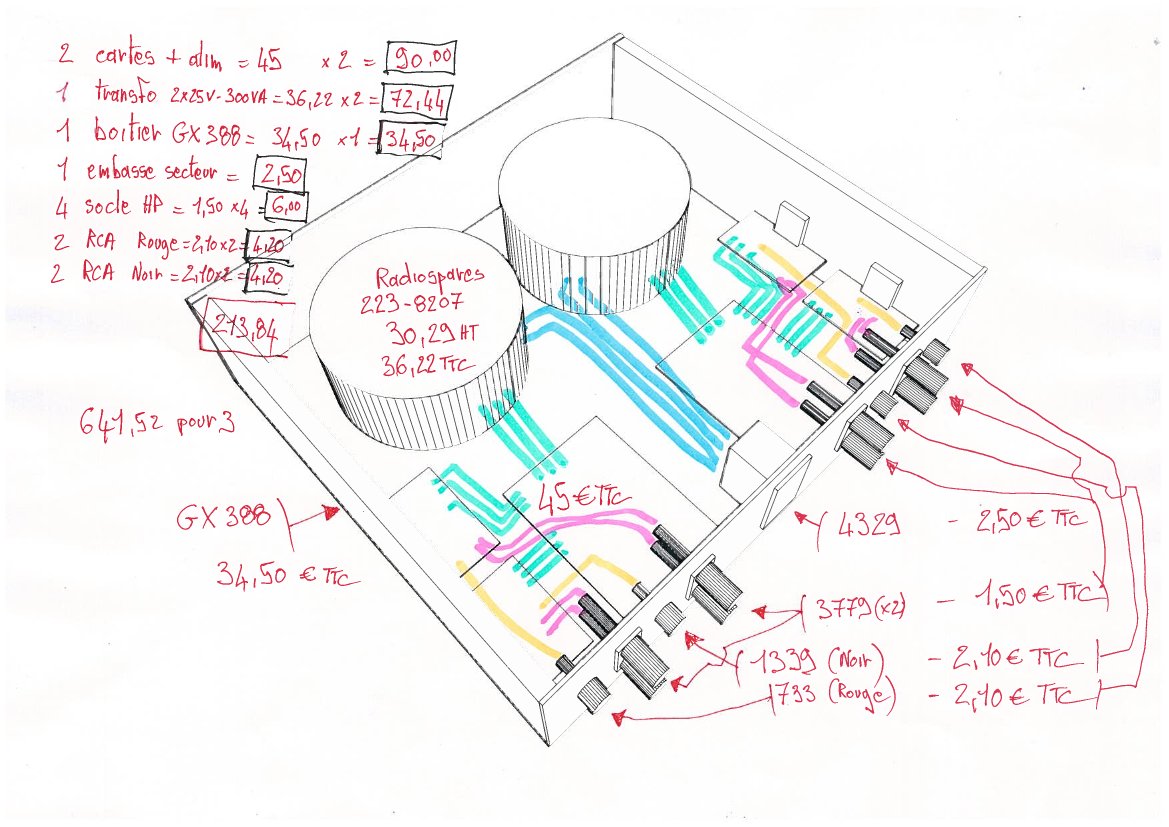 2 cartes + alim = 45 x 2 = 90,00
1 transfo 2x25V-300VA = 36,22 x2 = 72,44
1 boitier GX388 = 34,50 x1 = 34,50
1 embasse secteur = 2,50
4 socle HP = 1,50 x4 = 6,00
2 RCA Rouge = 2,10x2 = 4,20
2 RCA Noir = 2,10x2 = 4,20
213,84
641,52 pour 3
Radiospares
223-8207
30,29 HT
36,22 TTC
45 € TTC
GX388
34,50 € TTC
4329 - 2,50 € TTC
3779 (x2) - 1,50 € TTC
1339 (Noir) - 2,10 € TTC
1733 (Rouge) - 2,10 € TTC